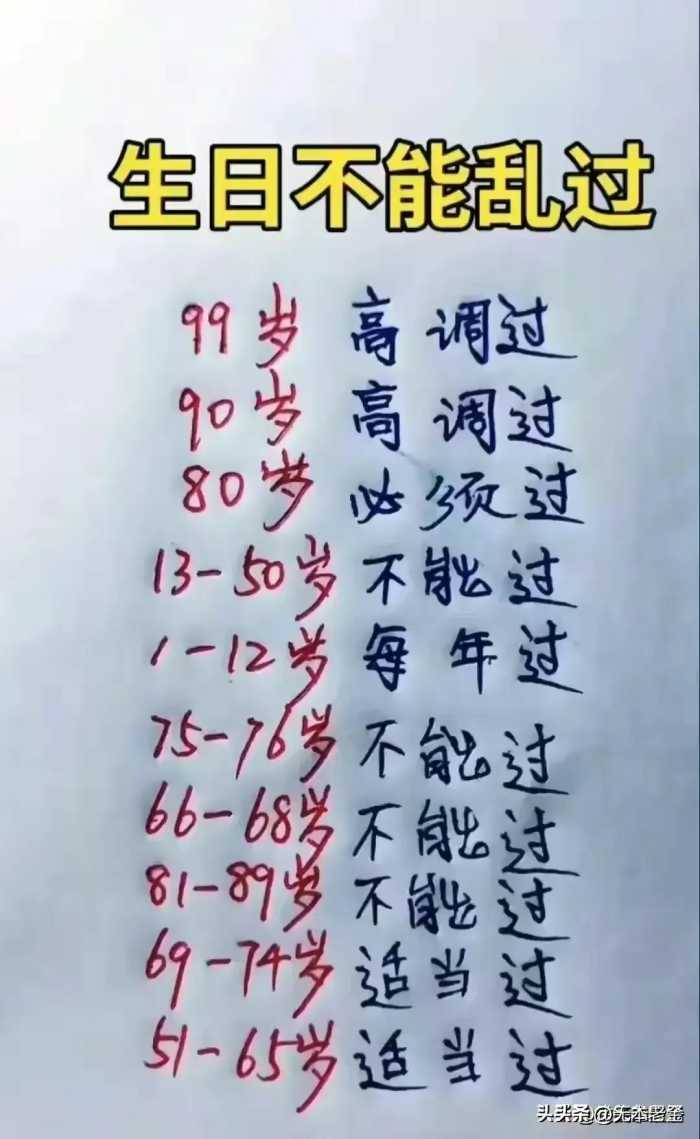 生日不能乱过
99岁 高调过
90岁 高调过
80岁 必须过
13-50岁 不能过
1-12岁 每年过
75-76岁 不能过
66-68岁 不能过
81-89岁 不能过
69-74岁 适当过
51-65岁 适当过